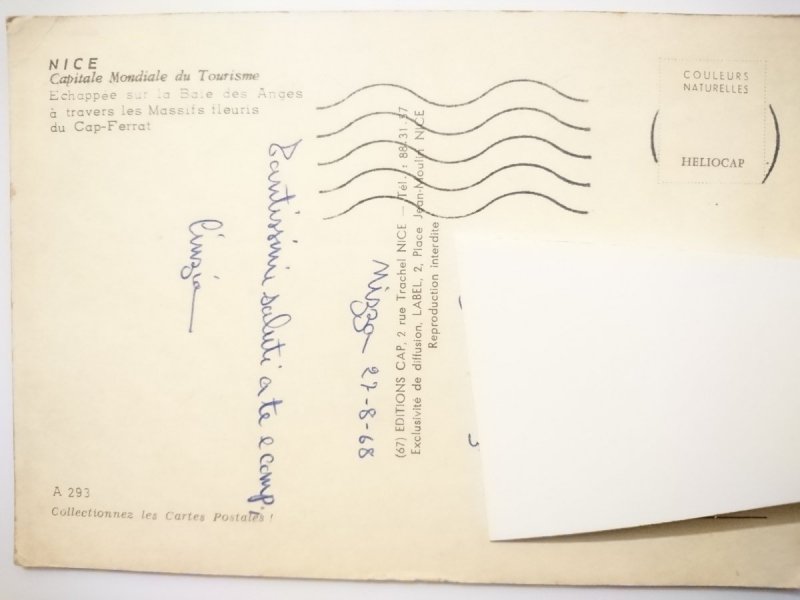 NICE
Capitale Mondiale du Tourisme
Echappée sur la Baie des Anges
à travers les Massifs fleuris
du Cap-Ferrat
COULEURS
NATURELLES
HELIOCAP
Nizza 27-8-68
Tantissimi saluti a te e comp.
Cinzia
(67) EDITIONS CAP, 2 rue Trachel NICE — Tél. : 88-31-37
Exclusivité de diffusion, LABEL, 2, Place Jean-Moulin NICE
Reproduction interdite
A 293
Collectionnez les Cartes Postales !